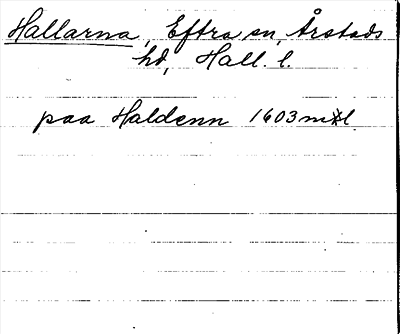 Hallarna, Eftra sn, Årstads
hd, Hall. l.
paa Haldenn 1603 mtl